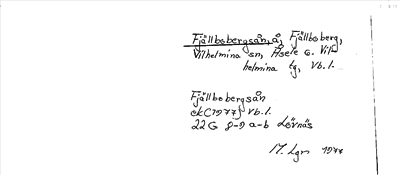 Fjällbobergsån, å, Fjällboberg,
Vilhelmina sn, Åsele o. Vil-
helmina tg, Vb.l.
Fjällbobergsån
ekC1977 Vb.l.
22G 8-9 a-b Lövnäs
M. Lgn 1977